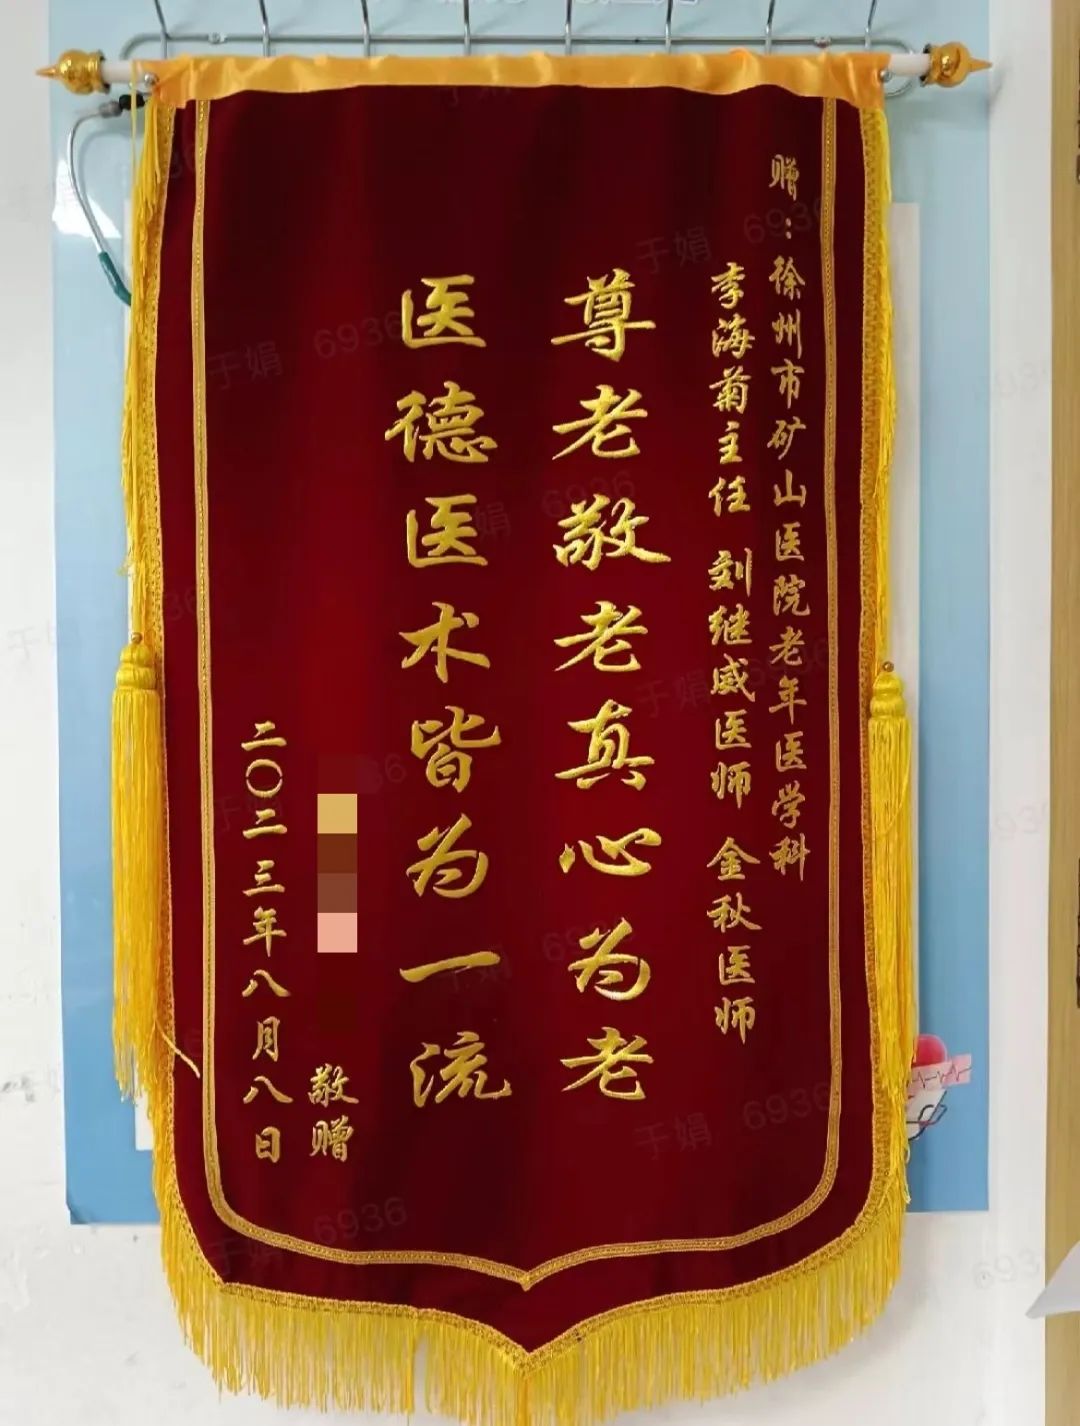 赠：徐州市矿山医院老年医学科
李海菊主任 刘继威医师 金秋医师
尊老敬老真心为老
医德医术皆为一流
敬赠
二〇二三年八月八日
于娟 6936